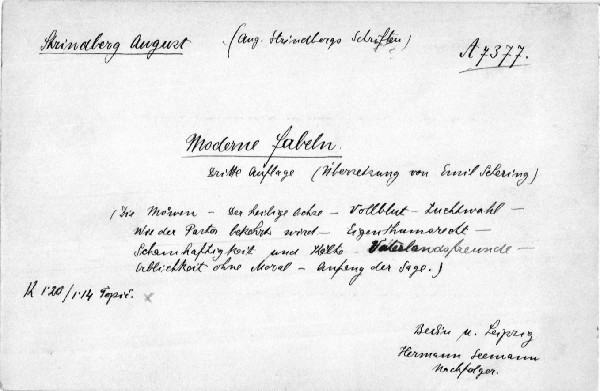 Strindberg August (Aug. Strindbergs Schriften) A 7377.
Moderne Fabeln.
Dritte Auflage (Übersetzung von Emil Schering)
(Die Möwen – Der heilige Ochse – Vollblut – Zuchtwahl –
Wie der bekehrt wird – Eigenthumsrecht –
Schamhaftigkeit und Kälte – Vaterlandsfreunde –
ohne Moral – Anfang der Sage.)
K 1·20/1·14 Topič. x
Berlin u. Leipzig
Hermann Seemann
Nachfolger.